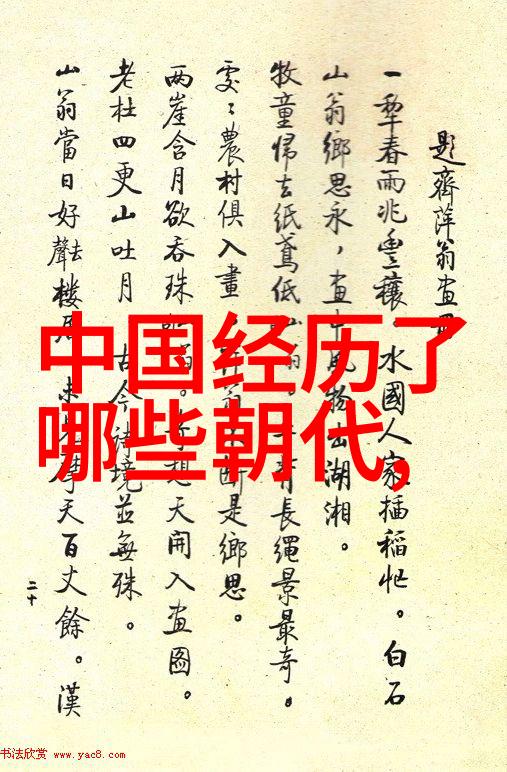 中国经历了
哪些朝代,
題齊萍翁畫
一犂春雨兆豐穰。水國人家插稻忙。白石
山翁鄉思永，畫出湖湘。
牧童歸去紙鳶低山長繩景最奇。
處〻農村俱入畫 斷是鄉思。
两崖含月欲吞珠 奇想天開入畫圖。
老杜四更山吐月 古今詩境並無殊。
山翁當日好聲去樓 未摩天百丈餘。漢
二十
书法欣赏 www.yac8.com